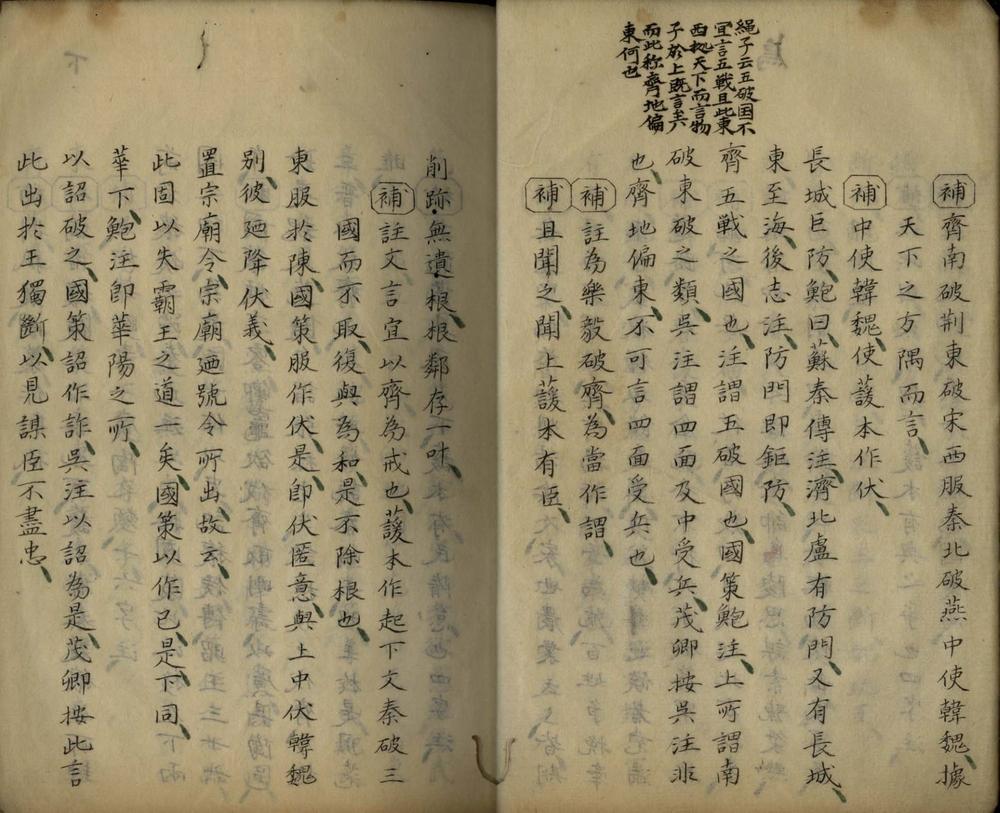 繩子云五破国不
宜言五戰且此東
西北天下而言物
子於上既言至六
而此称齊地偏
東何也
補齊南破荆東破宋西服秦北破燕中使韓魏據
天下之方隅而言
補中使韓魏使䕶本作伏
長城巨防鮑曰蘇秦傳注濟北盧有防門又有長城
東至海後志注防門即鉅防
齊五戰之國也注謂五破國也國策鮑注上所謂南
破東破之類吳注謂四面及中受兵茂卿按吳注非
也齊地偏東不可言四面受兵也
補註為樂毅破齊為當作謂
補且聞之聞上䕶本有臣
削跡無遺根根鄰存一叶
補註文言宜以齊為戒也䕶本作起下文秦破三
國而不取復與為和是不除根也
東服於陳國策服作伏是即伏匿意與上中伏韓魏
別彼廼降伏義
置宗廟令宗廟廼號令所出故云
此固以失霸王之道一矣國策以作已是下同
華下鮑注即華陽之所
以詔破之國策詔作詐吳注以詔為是茂卿按此言
此出於王獨斷以見謀臣不盡忠